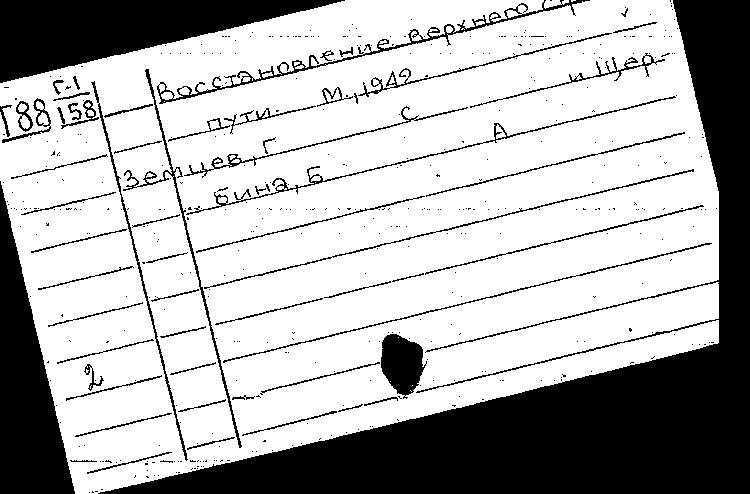 Г-1
Г88 158
Восстановление верхнего
пути. М., 1949.
Земцев, Г С и Щер-
бина, Б А
2